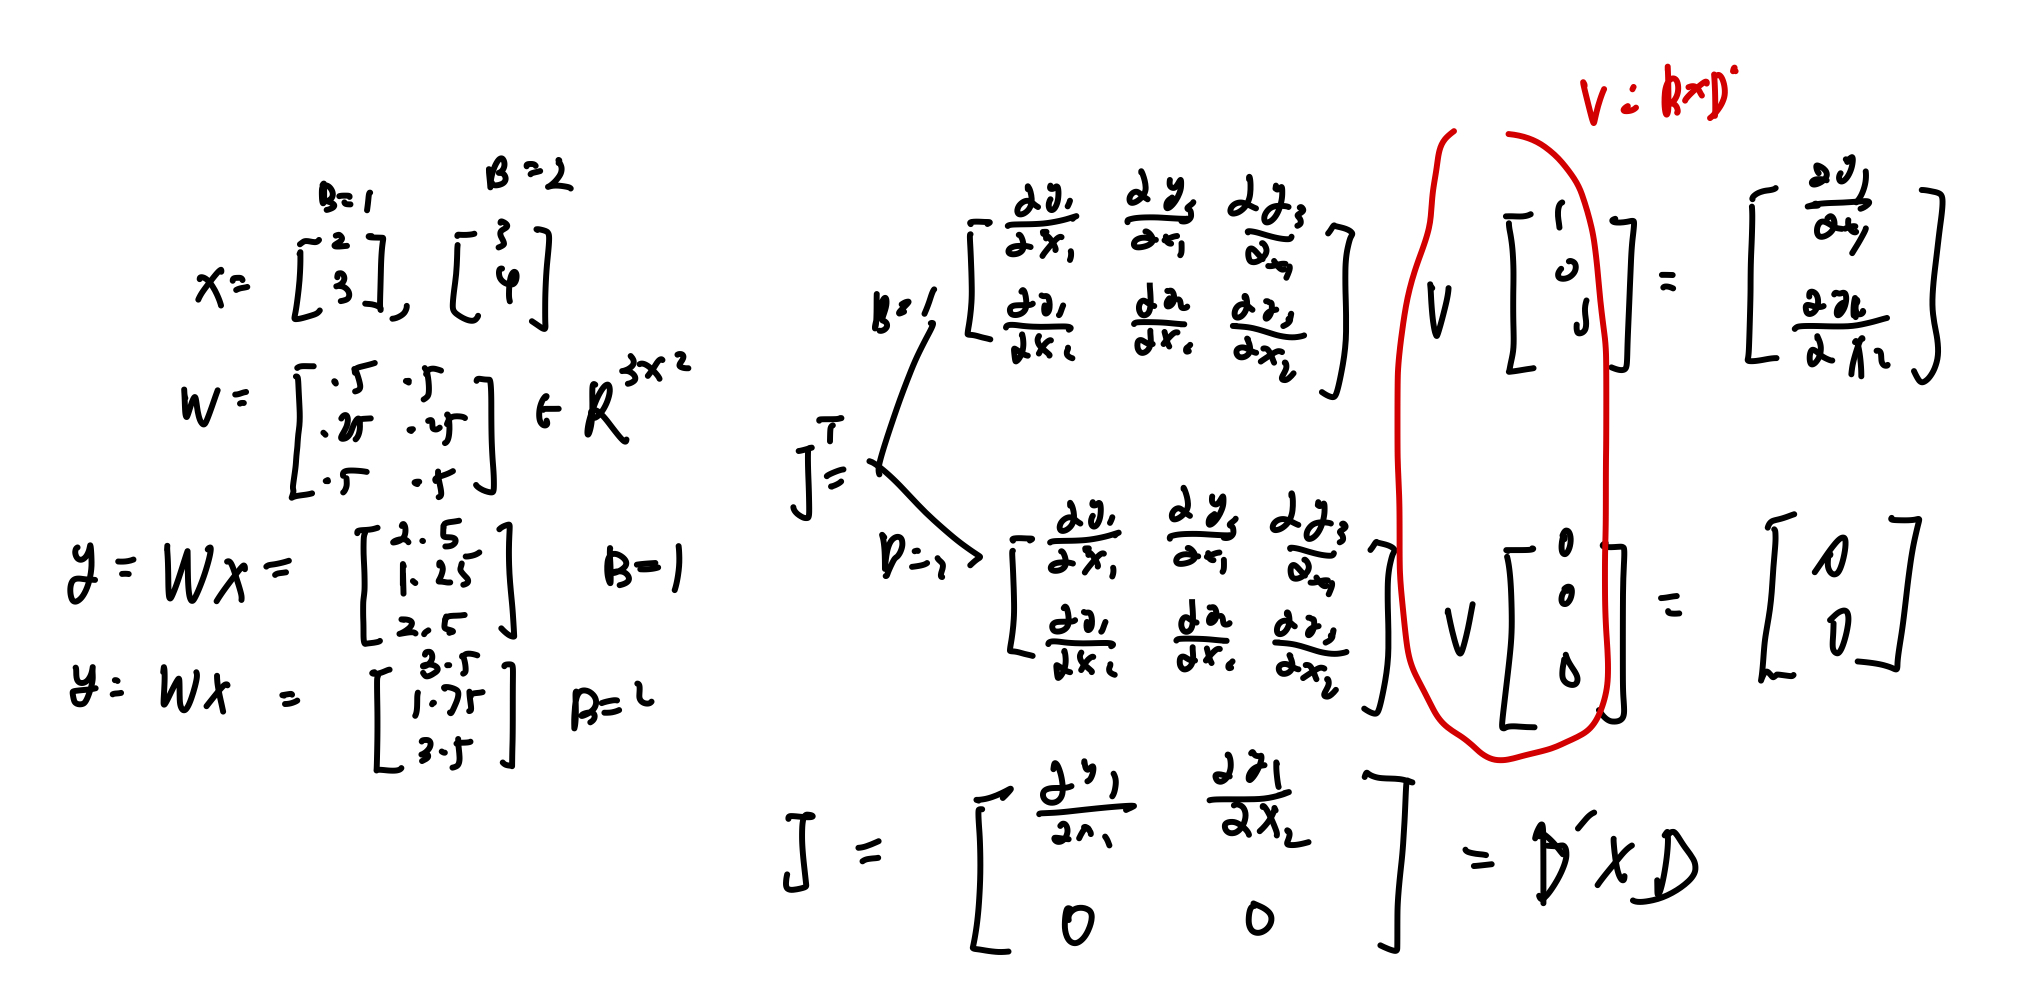 V = B×D'
B=1 B=2
x= [2 3], [3 4]
W = [.5 .5 .25 .25 .5 .5] ∈ R^3×2
y = Wx = [2.5 1.25 2.5] B=1
y = Wx = [3.5 1.75 3.5] B=2
J^T =
B=1 [∂y₁/∂x₁ ∂y₂/∂x₁ ∂y₃/∂x₁ ∂y₁/∂x₂ ∂y₂/∂x₂ ∂y₃/∂x₂] V [1 0 0] = [∂y₁/∂x₁ ∂y₁/∂x₂]
B=2 [∂y₁/∂x₁ ∂y₂/∂x₁ ∂y₃/∂x₁ ∂y₁/∂x₂ ∂y₂/∂x₂ ∂y₃/∂x₂] V [0 0 0] = [0 0]
J = [∂y₁/∂x₁ ∂y₁/∂x₂ 0 0] = D'×D